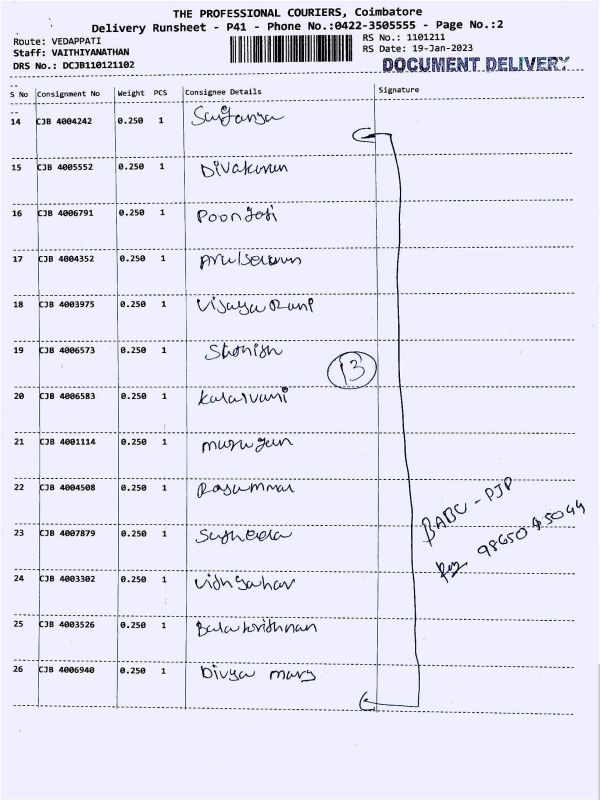 THE PROFESSIONAL COURIERS, Coimbatore
Delivery Runsheet - P41 - Phone No.:0422-3505555 - Page No.:2
Route: VEDAPPATI
Staff: VAITHIYANATHAN
DRS No.: DCJB110121102
RS No.: 1101211
RS Date: 19-Jan-2023
DOCUMENT DELIVERY
S No Consignment No Weight PCS Consignee Details Signature
14 CJB 4004242 0.250 1
15 CJB 4005552 0.250 1 Divakaran
16 CJB 4006791 0.250 1
17 CJB 4004352 0.250 1
18 CJB 4003975 0.250 1 Vijaya Rani
19 CJB 4006573 0.250 1
13
20 CJB 4006583 0.250 1 Kalaivani
21 CJB 4001114 0.250 1 murugan
22 CJB 4004508 0.250 1 Rasammal
23 CJB 4007879 0.250 1 Susheela
24 CJB 4003302 0.250 1
25 CJB 4003526 0.250 1 Balakrishnan
26 CJB 4006940 0.250 1 Divya mary
BABU - PJP